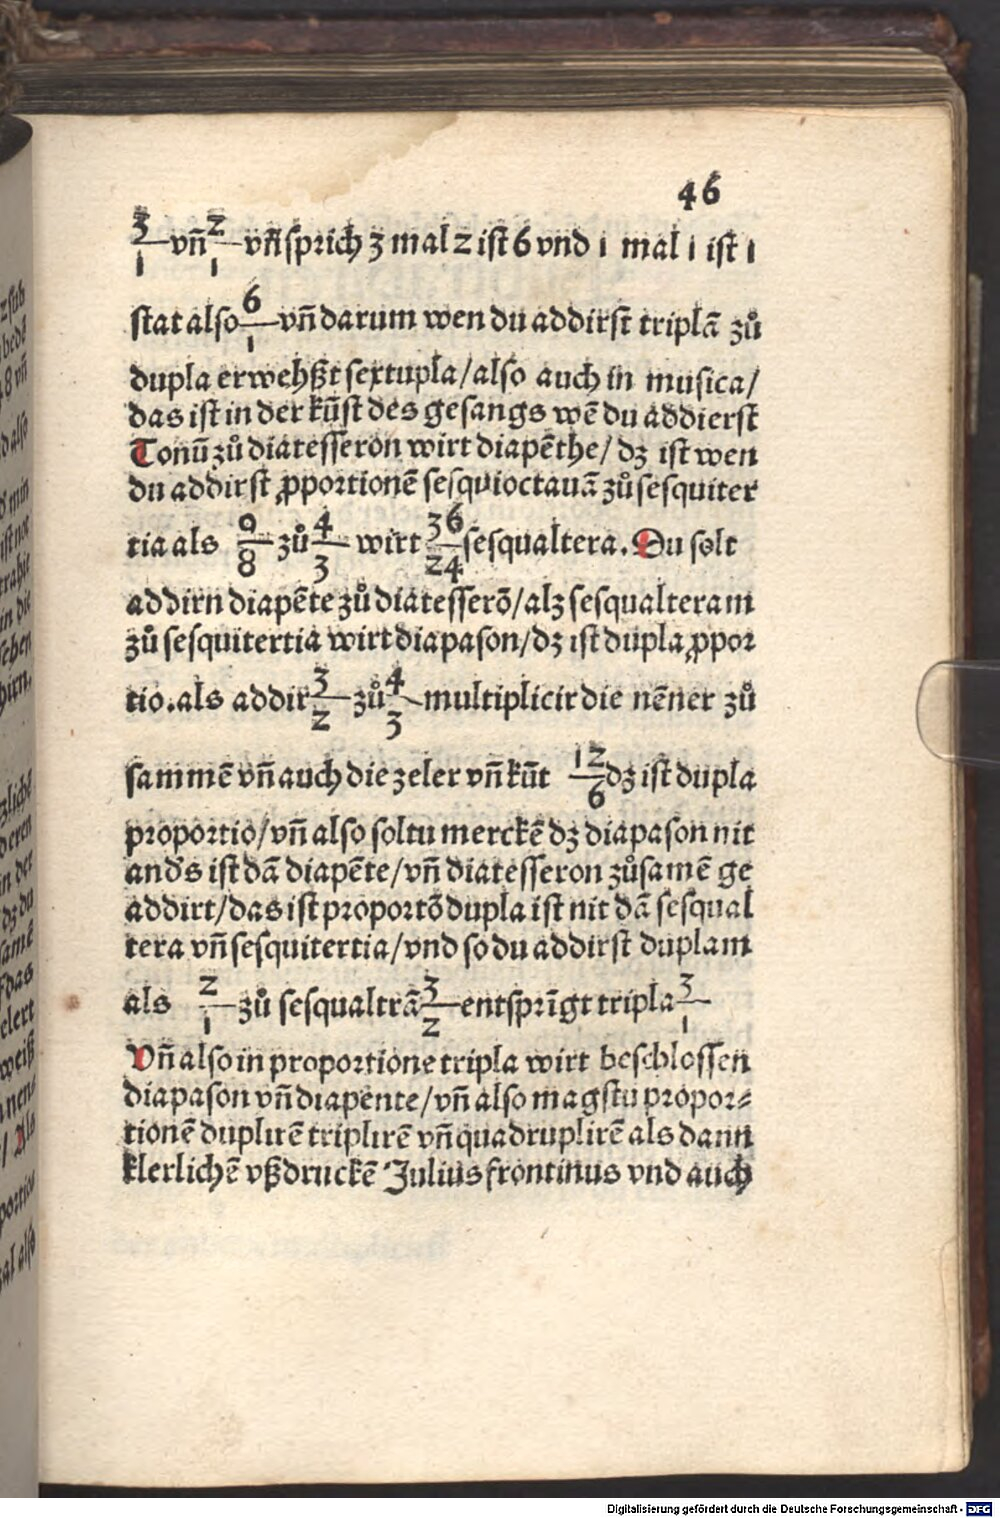 46
3/1 vñ 2/1 vñ sprich 3 mal 2 ist 6 vnd 1 mal 1 ist 1
stat also 6/1 vñ darum wen du addirst triplā zů
dupla erwehßt sextupla/also auch in musica/
das ist in der kūst des gesangs wē du addierst
Tonū zů diatesseron wirt diapēthe/dz ist wen
du addirst ꝓportionē sesquioctauā zů sesquiter
tia als 9/8 zů 4/3 wirt 36/24 sesqualtera. Du solt
addirn diapēte zů diatesserō/alz sesqualteram
zů sesquitertia wirt diapason/dz ist dupla ꝓpor
tio. als addir 3/2 zů 4/3 multiplicir die nēner zů
sammē vñ auch die zeler vñ kūt 12/6 dz ist dupla
proportio/vñ also soltu merckē dz diapason nit
and's ist dā diapēte/vñ diatesseron zůsamē ge
addirt/das ist proportō dupla ist nit dā sesqual
tera vñ sesquitertia/vnd so du addirst duplam
als 2/1 zů sesqualtrā 3/2 entsprīgt tripla 3/1
Vñ also in proportione tripla wirt beschlossen
diapason vñ diapente/vñ also magstu propor⸗
tionē duplirē triplirē vñ quadruplirē als dann
klerlichē vßdruckē Julius frontinus vnd auch
Digitalisierung gefördert durch die Deutsche Forschungsgemeinschaft - DFG